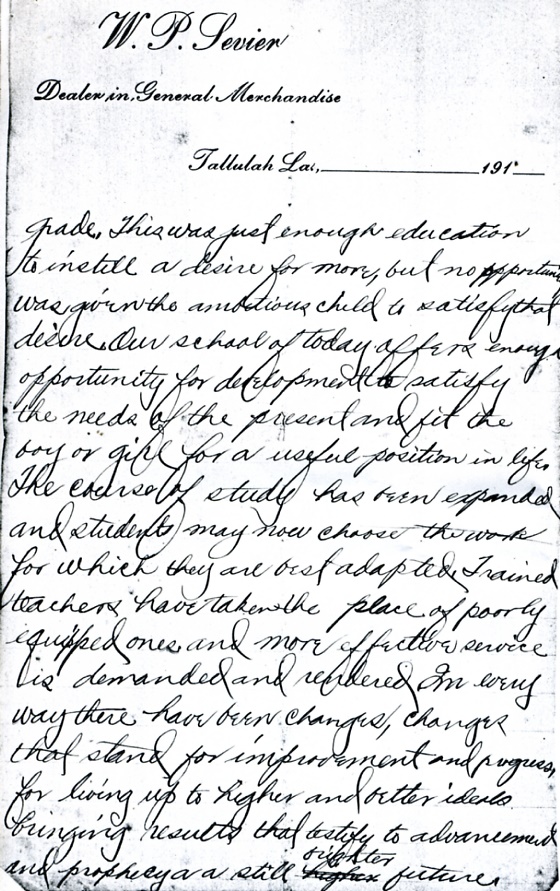 W. P. Sevier
Dealer in General Merchandise
Tallulah La., 191
grade. This was just enough education
to instill a desire for more, but no opportuni
was given the ambitious child to satisfy that
desire. Our school of today offers enough
opportunity for development to satisfy
the needs of the present and fit the
boy or girl for a useful position in life.
The course of study has been expanded
and students may now choose the work
for which they are best adapted. Trained
teachers have taken the place of poorly
equipped ones and more effective service
is demanded and rendered. In every
way there have been changes, changes
that stand for improvement and progress,
for living up to higher and better ideals
bringing results that testify to advancement
brighter
and prophecy a a still higher future.